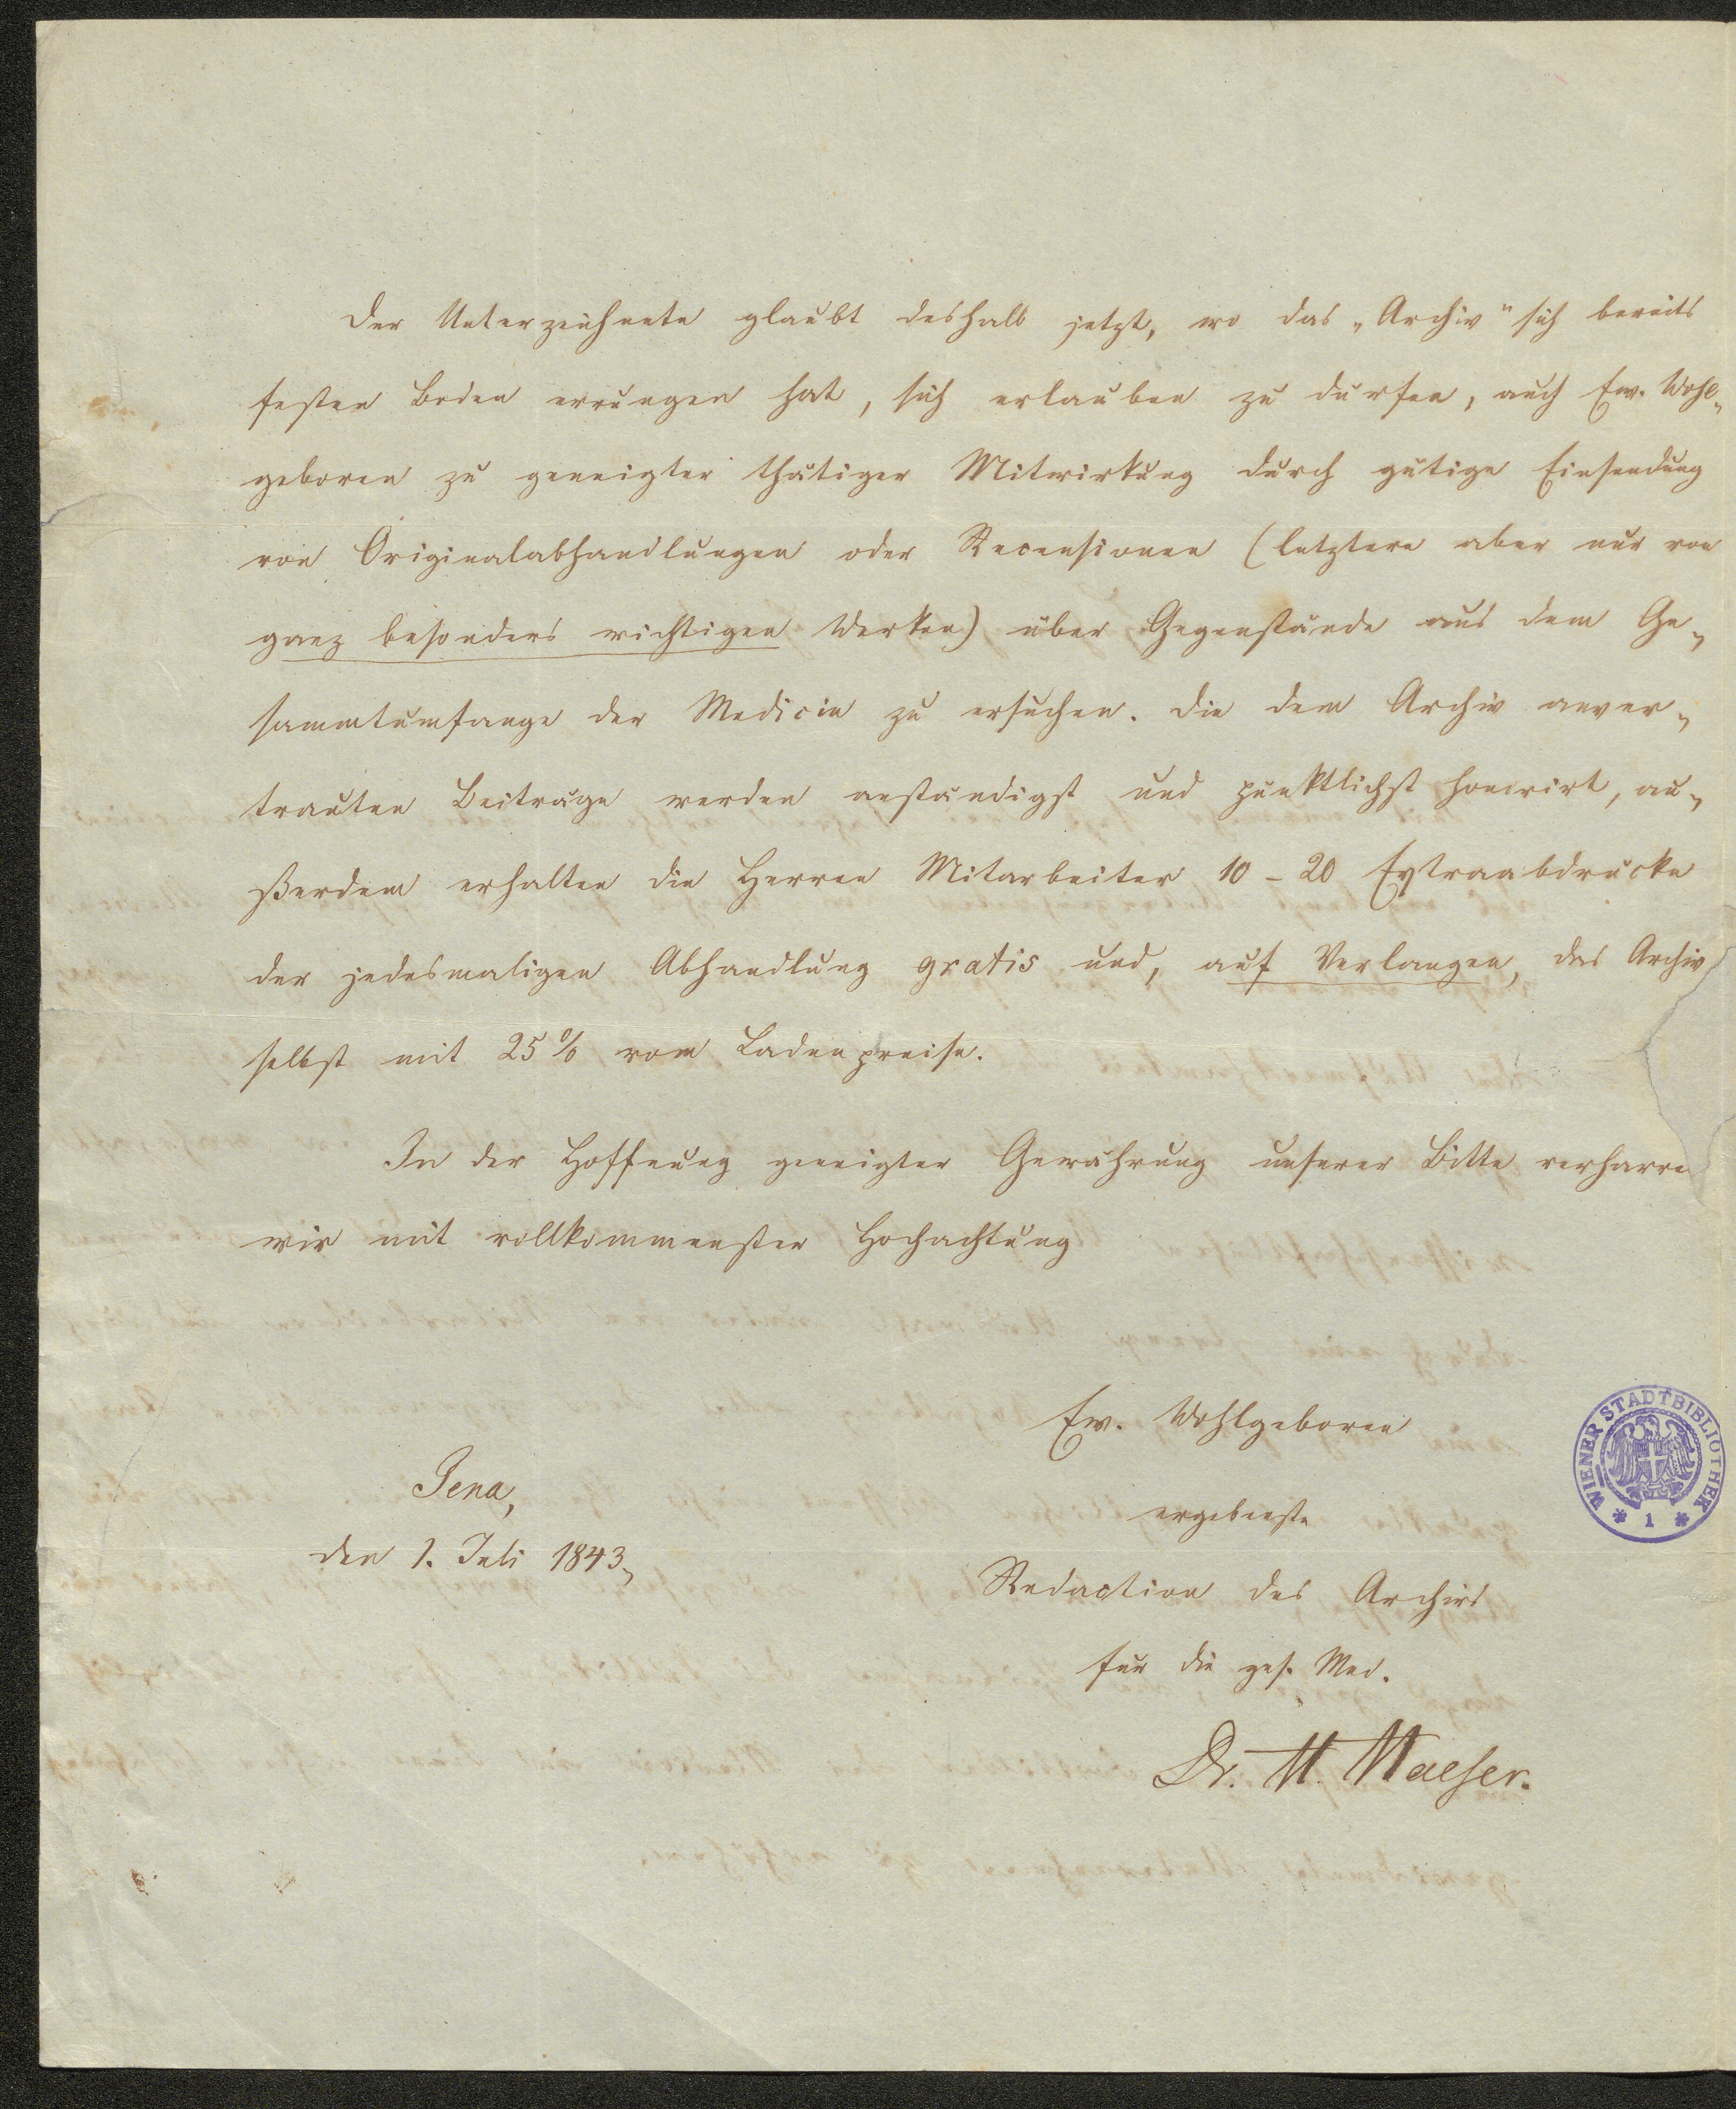 Der Unterzeichnete glaubt deshalb jetzt, wo das „Archiv" sich bereits
festen Boden errungen hat, sich erlauben zu dürfen, auch Ew. Wohl-
geboren zu geneigter thätiger Mitwirkung durch gütige Einsendung
von Originalabhandlungen oder Recensionen (letztere aber nur von
ganz besonders wichtigen Werken) über Gegenstände aus dem Ge-
sammtumfange der Medicin zu ersuchen. Die dem Archiv anver-
trauten Beiträge werden anständigst und pünktlichst honorirt, au-
ßerdem erhalten die Herren Mitarbeiter 10 – 20 Extraabdrücke
der jedesmaligen Abhandlung gratis und, auf Verlangen, das Archiv
selbst mit 25 % vom Ladenpreise.
In der Hoffnung geneigter Gewährung unserer Bitte verharre
wir mit vollkommenster Hochachtung
Ew. Wohlgeboren
Jena,
den 1. Juli 1843.
ergebenste
Redaction des Archivs
für die ges. Med.
Dr. H. Haeser.
WIENER STADTBIBLIOTHEK
* 1 *